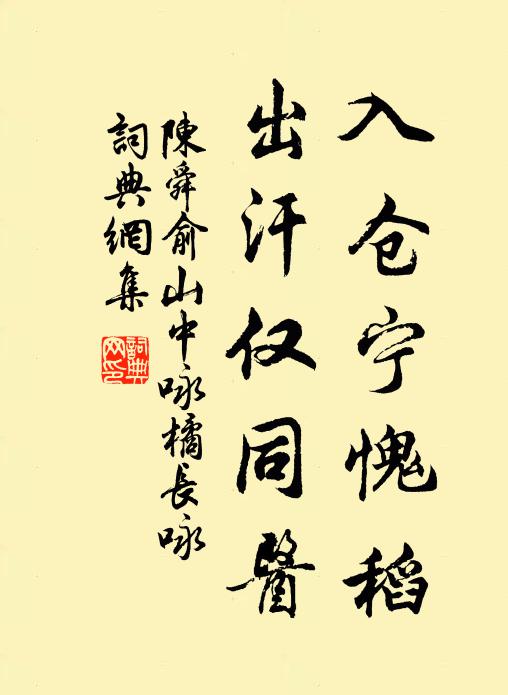 入仓宁愧稻
出汗仅同醫
陳舜俞山中咏橘長咏
詞典網集
詞典網印